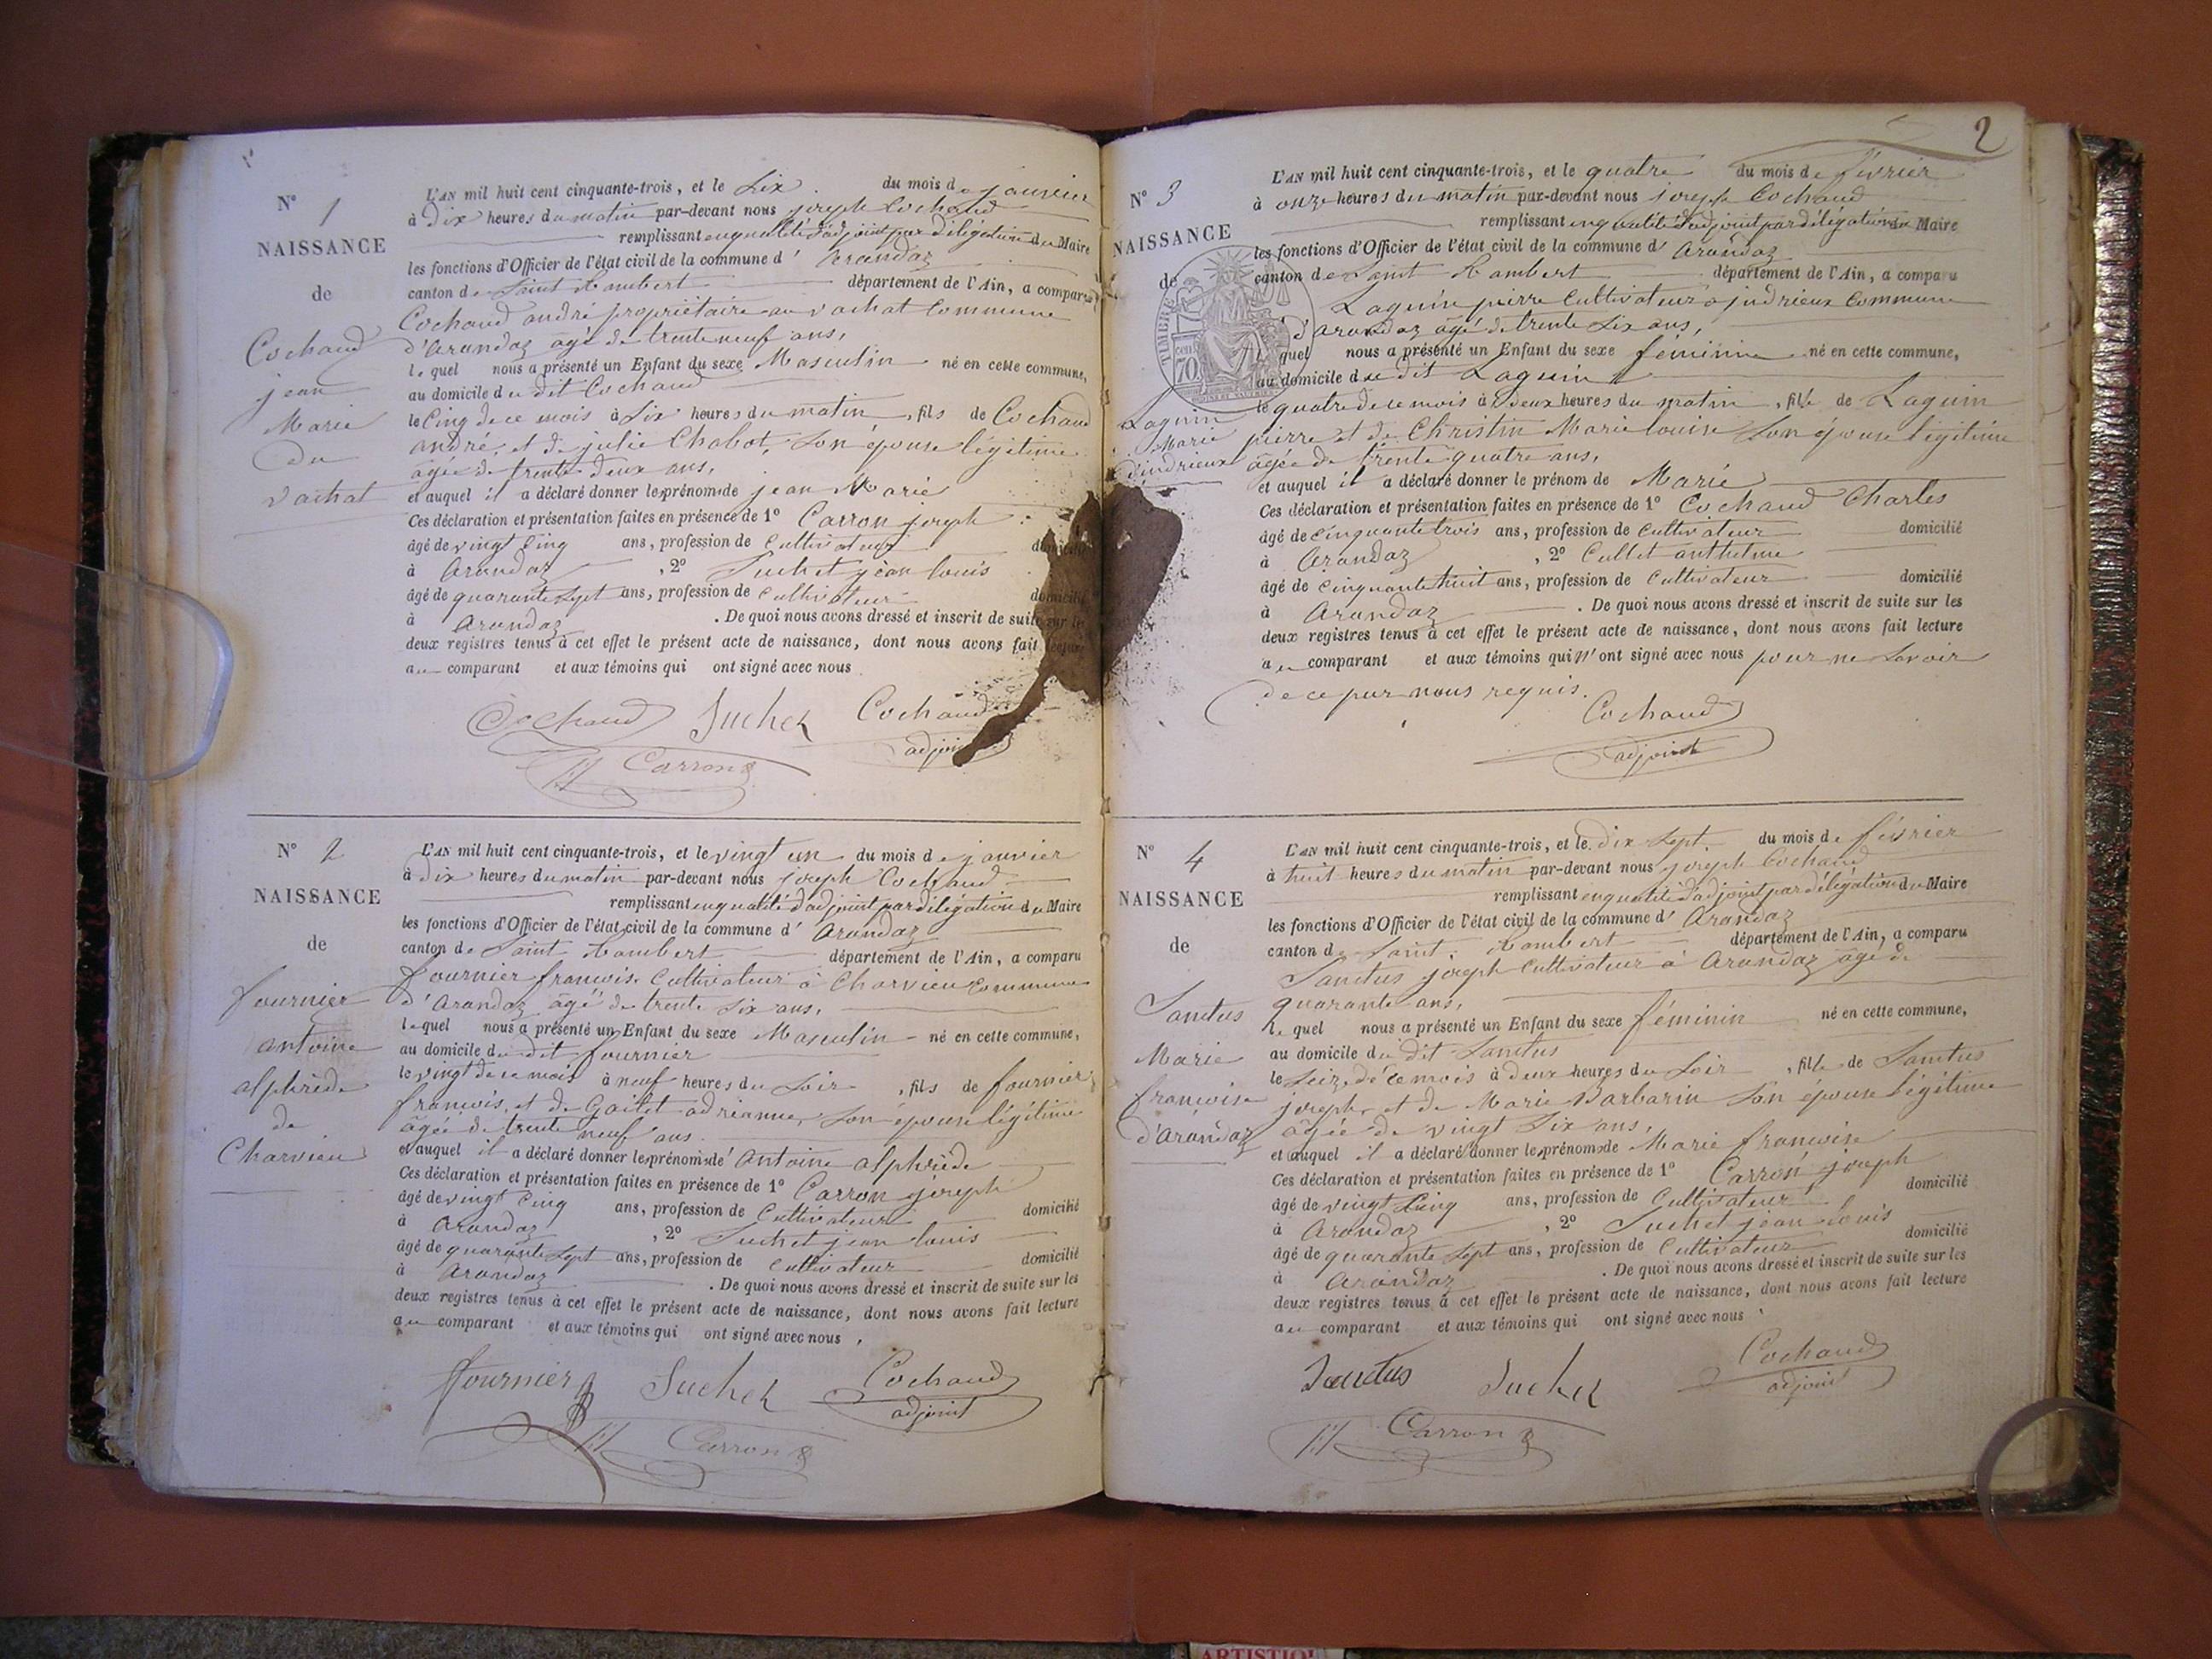 N° 1
NAISSANCE
de
Cochaud
jean
Marie
du
vachat
L'AN mil huit cent cinquante-trois, et le Six du mois de janvier
à Dix heures du matin par-devant nous joseph Cochaud
remplissant en qualité d'adjoint par délégation du Maire
les fonctions d'Officier de l'état civil de la commune d' Arandaz
canton de Saint Rambert département de l'Ain, a comparu
Cochaud andré propriétaire au vachat Commune
d'Arandaz âgé de trente neuf ans,
lequel nous a présenté un Enfant du sexe Masculin né en cette commune,
au domicile du dit Cochaud
le Cinq de ce mois à Six heures du matin, fils de Cochaud
andré, et de julie Chabot, Son épouse légitime
agée de trente deux ans,
et auquel il a déclaré donner les prénoms de jean Marie
Ces déclaration et présentation faites en présence de 1° Carron joseph
âgé de vingt Cinq ans, profession de Cultivateur domicilié
à Arandaz, 2° Suchet jean louis
âgé de quarante Sept ans, profession de Cultivateur domicilié
à Arandaz. De quoi nous avons dressé et inscrit de suite sur les
deux registres tenus à cet effet le présent acte de naissance, dont nous avons fait lecture
au comparant et aux témoins qui ont signé avec nous
Cochaud Suchet Cochaud
adjoint
Carron
N° 2
NAISSANCE
de
fournier
antoine
alphrède
de
Charvieu
L'AN mil huit cent cinquante-trois, et le vingt un du mois de janvier
à Dix heures du matin par-devant nous joseph Cochaud
remplissant en qualité d'adjoint par délégation du Maire
les fonctions d'Officier de l'état civil de la commune d' Arandaz
canton de Saint Rambert département de l'Ain, a comparu
fournier francois Cultivateur à Charvieu Commune
d'Arandaz âgé de trente Six ans,
lequel nous a présenté un Enfant du sexe Masculin né en cette commune,
au domicile du dit fournier
le vingt de ce mois à neuf heures du Soir, fils de fournier
francois, et de Gaillet adrianne, Son épouse légitime
âgée de trente neuf ans
et auquel il a déclaré donner les prénoms d' Antoine alphrède
Ces déclaration et présentation faites en présence de 1° Carron joseph
âgé de vingt Cinq ans, profession de Cultivateur domicilié
à Arandaz, 2° Suchet jean louis
âgé de quarante Sept ans, profession de Cultivateur domicilié
à Arandaz. De quoi nous avons dressé et inscrit de suite sur les
deux registres tenus à cet effet le présent acte de naissance, dont nous avons fait lecture
au comparant et aux témoins qui ont signé avec nous,
fournier Suchet Cochaud
adjoint
Carron
2
N° 3
NAISSANCE
de
TIMBRE
70
Laguin
Marie
d'indrieux
L'AN mil huit cent cinquante-trois, et le quatre du mois de février
à onze heures du matin par-devant nous joseph Cochaud
remplissant en qualité d'adjoint par délégation du Maire
les fonctions d'Officier de l'état civil de la commune d' Arandaz
canton de Saint Rambert département de l'Ain, a comparu
Laguin pierre Cultivateur à indrieux Commune
d'Arandaz âgé de trente Six ans,
lequel nous a présenté un Enfant du sexe féminin né en cette commune,
au domicile du dit Laguin
le quatre de ce mois à deux heures du matin, fille de Laguin
pierre et de Christin Marie louise Son épouse légitime
âgée de trente quatre ans,
et auquel il a déclaré donner le prénom de Marie
Ces déclaration et présentation faites en présence de 1° Cochaud Charles
âgé de Cinquante trois ans, profession de Cultivateur domicilié
à Arandaz, 2° Cullet anthelme
âgé de Cinquante huit ans, profession de Cultivateur domicilié
à Arandaz. De quoi nous avons dressé et inscrit de suite sur les
deux registres tenus à cet effet le présent acte de naissance, dont nous avons fait lecture
au comparant et aux témoins qui n'ont signé avec nous pour ne Savoir
de ce par nous requis.
Cochaud
adjoint
N° 4
NAISSANCE
de
Sanctus
Marie
francoise
d'Arandaz
L'AN mil huit cent cinquante-trois, et le dix Sept du mois de février
à huit heures du matin par-devant nous joseph Cochaud
remplissant en qualité d'adjoint par délégation du Maire
les fonctions d'Officier de l'état civil de la commune d' Arandaz
canton de Saint Rambert département de l'Ain, a comparu
Sanctus joseph Cultivateur à Arandaz âgé de
quarante ans,
lequel nous a présenté un Enfant du sexe féminin né en cette commune,
au domicile du dit Sanctus
le Seize de ce mois à deux heures du Soir, fille de Sanctus
joseph, et de Marie Barbarin Son épouse légitime
âgée de vingt Six ans,
et auquel il a déclaré donner les prénoms de Marie francoise
Ces déclaration et présentation faites en présence de 1° Carron joseph
âgé de vingt Cinq ans, profession de Cultivateur domicilié
à Arandaz, 2° Suchet jean louis
âgé de quarante Sept ans, profession de Cultivateur domicilié
à Arandaz. De quoi nous avons dressé et inscrit de suite sur les
deux registres tenus à cet effet le présent acte de naissance, dont nous avons fait lecture
au comparant et aux témoins qui ont signé avec nous
Sanctus Suchet Cochaud
adjoint
Carron